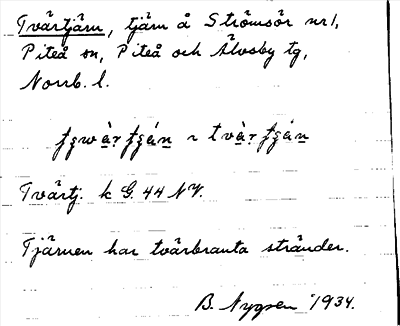 Tvärtjärn, tjärn å Strömsör nr 1,
Piteå sn, Piteå och Älvsby tg,
Norrb. l.
Tvärtj. k G. 44 NV.
Tjärnen har tvärbranta stränder.
B. Nygren 1934.